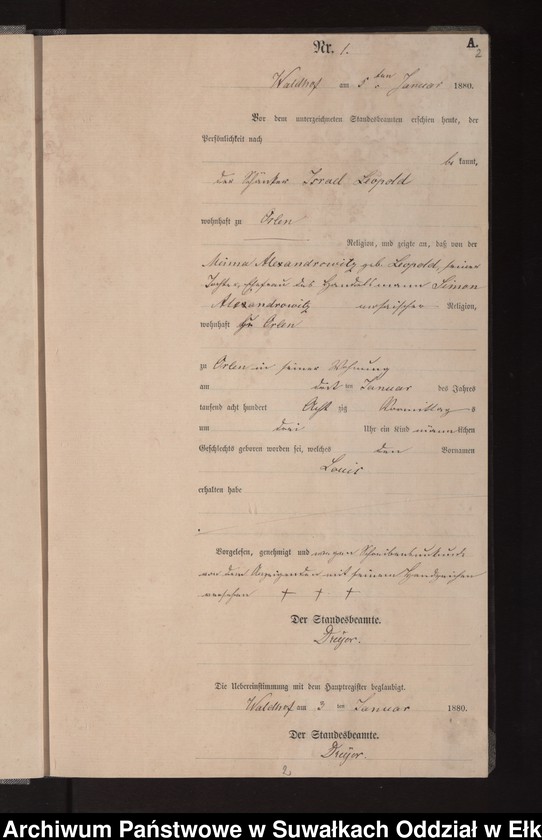 Nr. 1.
A.
2
Waldhof am 5ten Januar 1880.
Vor dem unterzeichneten Standesbeamten erschien heute, der
Persönlichkeit nach
be kannt,
der Schänker Israel Leopold
wohnhaft zu Orlen
Religion, und zeigte an, daß von der
Minna Alexandrowitz geb. Leopold, seiner
Tochter, Ehefrau des Handelsmann Simon
Alexandrowitz mosaischer Religion,
wohnhaft zu Orlen
zu Orlen in seiner Wohnung
am ten Januar des Jahres
tausend acht hundert Acht zig Vormittags
um drei Uhr ein Kind männlichen
Geschlechts geboren worden sei, welches den Vornamen
Louis
erhalten habe
Vorgelesen, genehmigt und wegen Schreibensunkunde
von dem Anzeigenden mit seinem Handzeichen
versehen † † †
Der Standesbeamte.
Dreyer.
Die Uebereinstimmung mit dem Hauptregister beglaubigt.
Waldhof am ten Januar 1880.
Der Standesbeamte.
Dreyer.
2
Archiwum Państwowe w Suwałkach Oddział w Ełk